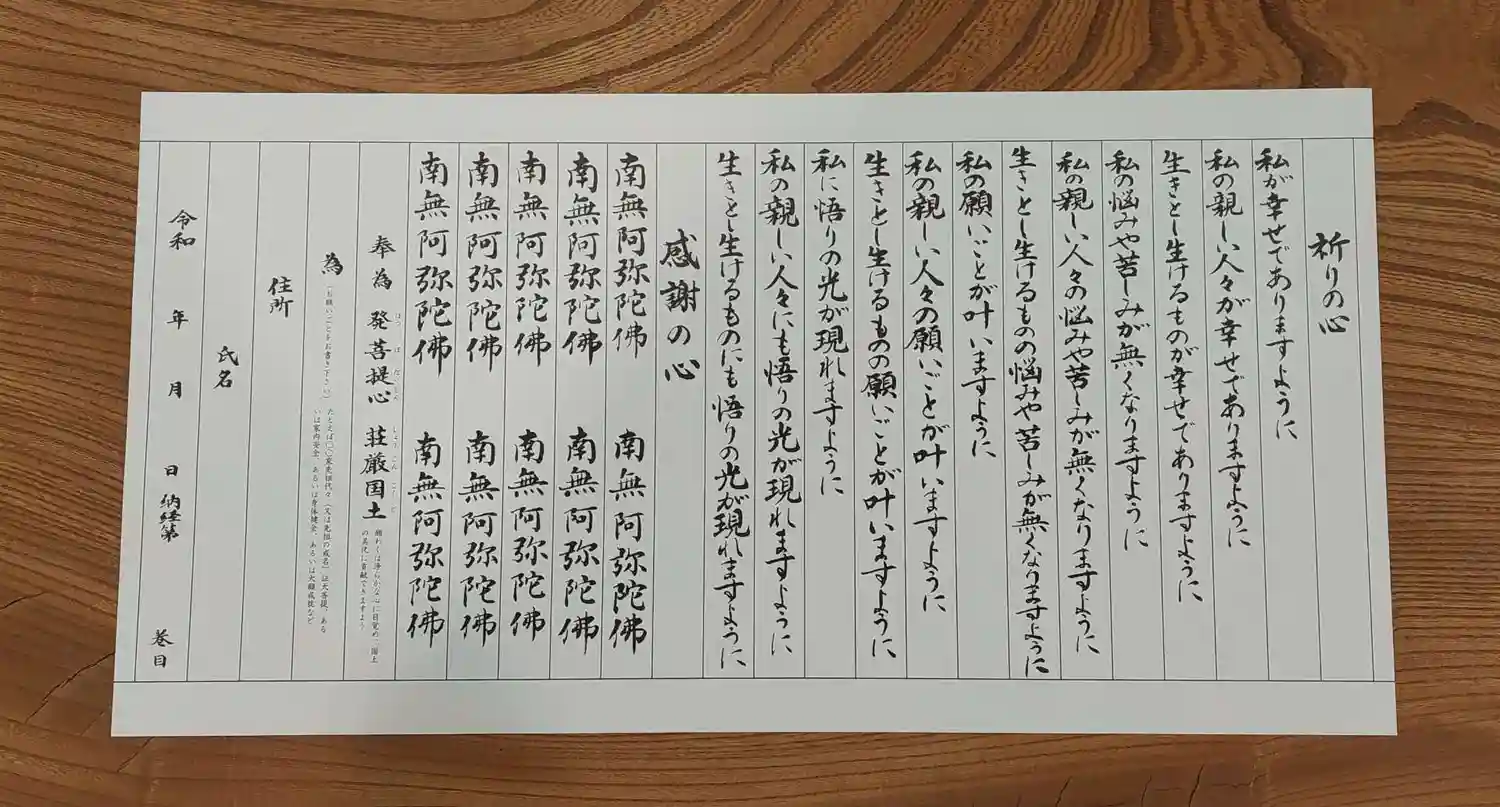 祈りの心
私が幸せでありますように
私の親しい人々が幸せでありますように
生きとし生けるものが幸せでありますように
私の悩みや苦しみが無くなりますように
私の親しい人々の悩みや苦しみが無くなりますように
生きとし生けるものの悩みや苦しみが無くなりますように
私の願いごとが叶いますように
私の親しい人々の願いごとが叶いますように
生きとし生けるものの願いごとが叶いますように
私に悟りの光が現れますように
私の親しい人々にも悟りの光が現れますように
生きとし生けるものにも悟りの光が現れますように
感謝の心
南無阿弥陀佛 南無阿弥陀佛
南無阿弥陀佛 南無阿弥陀佛
南無阿弥陀佛 南無阿弥陀佛
南無阿弥陀佛 南無阿弥陀佛
南無阿弥陀佛 南無阿弥陀佛
奉為 発菩提心 荘厳国土
ほつ ぼ だい しん しょう ごん こく ど
願わくは浄らかな心に目覚め、国土
の美化に貢献できますよう
為
(お願いごとをお書き下さい)
たとえば〇〇家先祖代々(又は先祖の戒名)証大菩提、ある
いは家内安全、あるいは身体健全、あるいは大願成就など
住所
氏名
令和 年 月 日 納経第 巻目